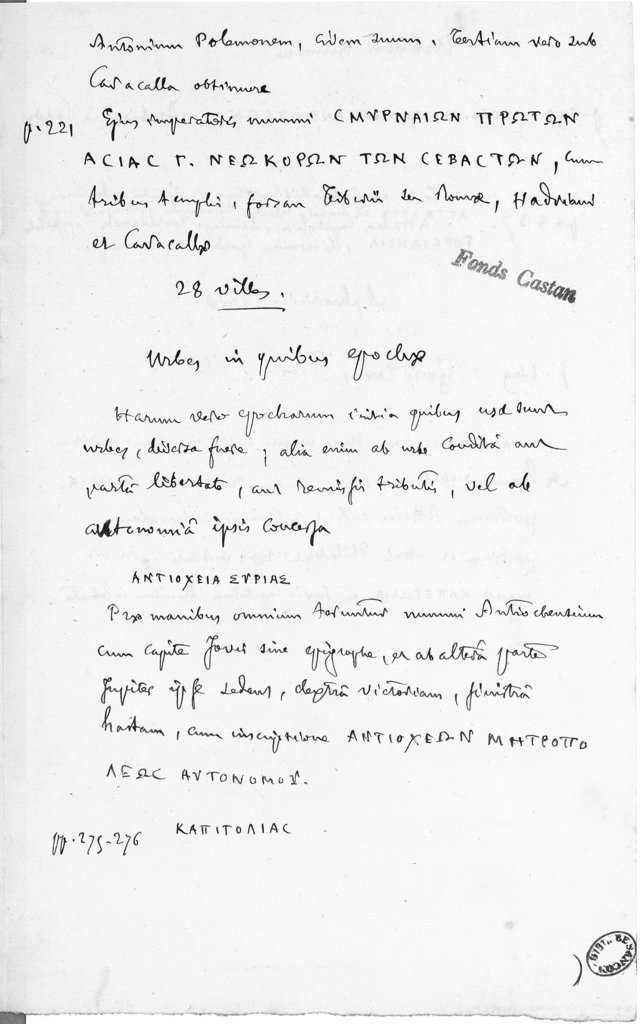 Antonium Polemonem, civem suum. Tertium vero sub
Caracalla obtinuere
p. 221 Ejus imperatoris nummi CΜΥΡΝΑΙΩΝ ΠΡΩΤΩΝ
ΑCΙΑC Γ. ΝΕΩΚΟΡΩΝ ΤΩΝ CΕΒΑCΤΩΝ, cum
tribus templis, forsan Tiberii seu Romæ, Hadriani
et Caracallæ
Fonds Castan
28 villes.
Urbes in quibus epochæ
Harum vero epocharum initia quibus usæ sunt
urbes, diversa fuere; alia enim ab urbe condita aut
parta libertate, aut remissis tributis, vel ab
autonomiâ ipsis concessa
ΑΝΤΙΟΧΕΙΑ ΣΥΡΙΑΣ
Præ manibus omnium teruntur nummi Antiochensium
cum capite Jovis sine epigraphe, et ab alterâ parte
Jupiter ipse sedens, dextrâ victoriam, sinistrâ
hastam, cum inscriptione ΑΝΤΙΟΧΕΩΝ ΜΗΤΡΟΠΟ
ΛΕΩC ΑΥΤΟΝΟΜΟΥ.
pp. 275-276 ΚΑΠΙΤΟΛΙΑC
BIBL. BESANÇON